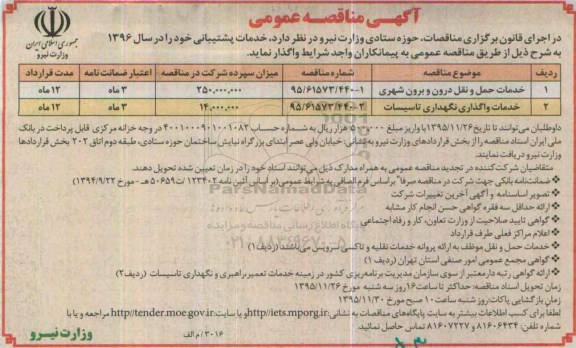 آگهی مناقصه عمومی
جمهوری اسلامی ایران
وزارت نیرو
در اجرای قانون برگزاری مناقصات، حوزه ستادی وزارت نیرو در نظر دارد، خدمات پشتیبانی خود را در سال ۱۳۹۶
به شرح ذیل از طریق مناقصه عمومی به پیمانکاران واجد شرایط واگذار نماید.
ردیف موضوع مناقصه شماره مناقصه میزان سپرده شرکت در مناقصه اعتبار ضمانت نامه مدت قرارداد
۱ خدمات حمل و نقل درون و برون شهری ۹۵/۶۱۵۷۳/۴۴۰-۱ ۲۵۰.۰۰۰.۰۰۰ ۳ ماه ۱۲ ماه
۲ خدمات واگذاری نگهداری تاسیسات ۹۵/۶۱۵۷۳/۴۴۰-۲ ۱۴.۰۰۰.۰۰۰ ۳ ماه ۱۲ ماه
داوطلبان می‌توانند تا تاریخ ۱۳۹۵/۱۱/۲۶ با واریز مبلغ ریال به شماره حساب در وجه خزانه مرکزی قابل پرداخت در بانک
ملی ایران اسناد مناقصه را از بخش قراردادهای وزارت نیرو به نشانی: خیابان ولی عصر ابتدای بزرگراه نیایش ساختمان حوزه ستادی، طبقه دوم اتاق ۲۰۲ بخش قراردادها
وزارت نیرو دریافت نمایند.
متقاضیان شرکت‌کننده در تجدید مناقصه عمومی به همراه مدارک ذیل می‌توانند اسناد خود را در زمان تعیین شده تحویل دهند.
ضمانت‌نامه بانکی جهت شرکت در مناقصه صرفا" براساس فرم الحاقی به شرایط عمومی (بر اساس آئین نامه ۱۲۳۴۰۲/ت۵۰۶۵۹ه - مورخ ۱۳۹۴/۹/۲۲)
تصویر اساسنامه و آگهی آخرین تغییرات شرکت
ارائه حداقل سه فقره گواهی حسن انجام کار مشابه
گواهی تایید صلاحیت از وزارت تعاون، کار و رفاه اجتماعی
اعلام مراکز فعلی طرف قرارداد
خدمات حمل و نقل موظف به ارائه پروانه خدمات نقلیه و تاکسی سرویس می‌باشند (ردیف ۱)
گواهی مجمع عمومی امور صنفی استان تهران (ردیف ۱)
ارائه گواهی رتبه دار معتبر از سوی سازمان مدیریت برنامه‌ریزی کشور در زمینه خدمات تعمیر، راهبری و نگهداری تاسیسات (ردیف ۲)
زمان تحویل اسناد مناقصه: حداکثر تا ساعت ۱۶ روز سه شنبه مورخ ۱۳۹۵/۱۱/۲۶
زمان بازگشایی پاکات: روز شنبه ساعت ۱۰ صبح مورخ ۱۳۹۵/۱۱/۳۰
لطفا برای کسب اطلاعات بیشتر به سایت پایگاههای مناقصات به نشانی: http//iets.mporg.ir و یا سایت: http//tender.moe.gov.ir مراجعه و یا با
شماره تلفن: ۸۱۶۰۶۴۳۴ و ۸۱۶۰۷۲۲۷ تماس حاصل نمائید.
۳۰۱۶/م الف
وزارت نیرو